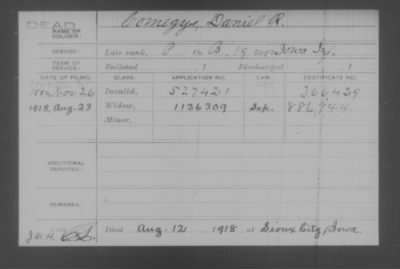 DEAD
NAME OF SOLDIER: Comegys, Daniel R.
SERVICE: Late rank, P Co. B, 19 Reg't Iowa Inf.
TERM OF SERVICE: Enlisted , 1 Discharged , 1
DATE OF FILING. CLASS. APPLICATION NO. LAW. CERTIFICATE NO.
26 Invalid, 527421 366429
1918, Aug. 23 Widow, 1126309 886944
Minor,
ADDITIONAL SERVICES:
REMARKS:
Died Aug. 12, 1918, at Sioux City Iowa